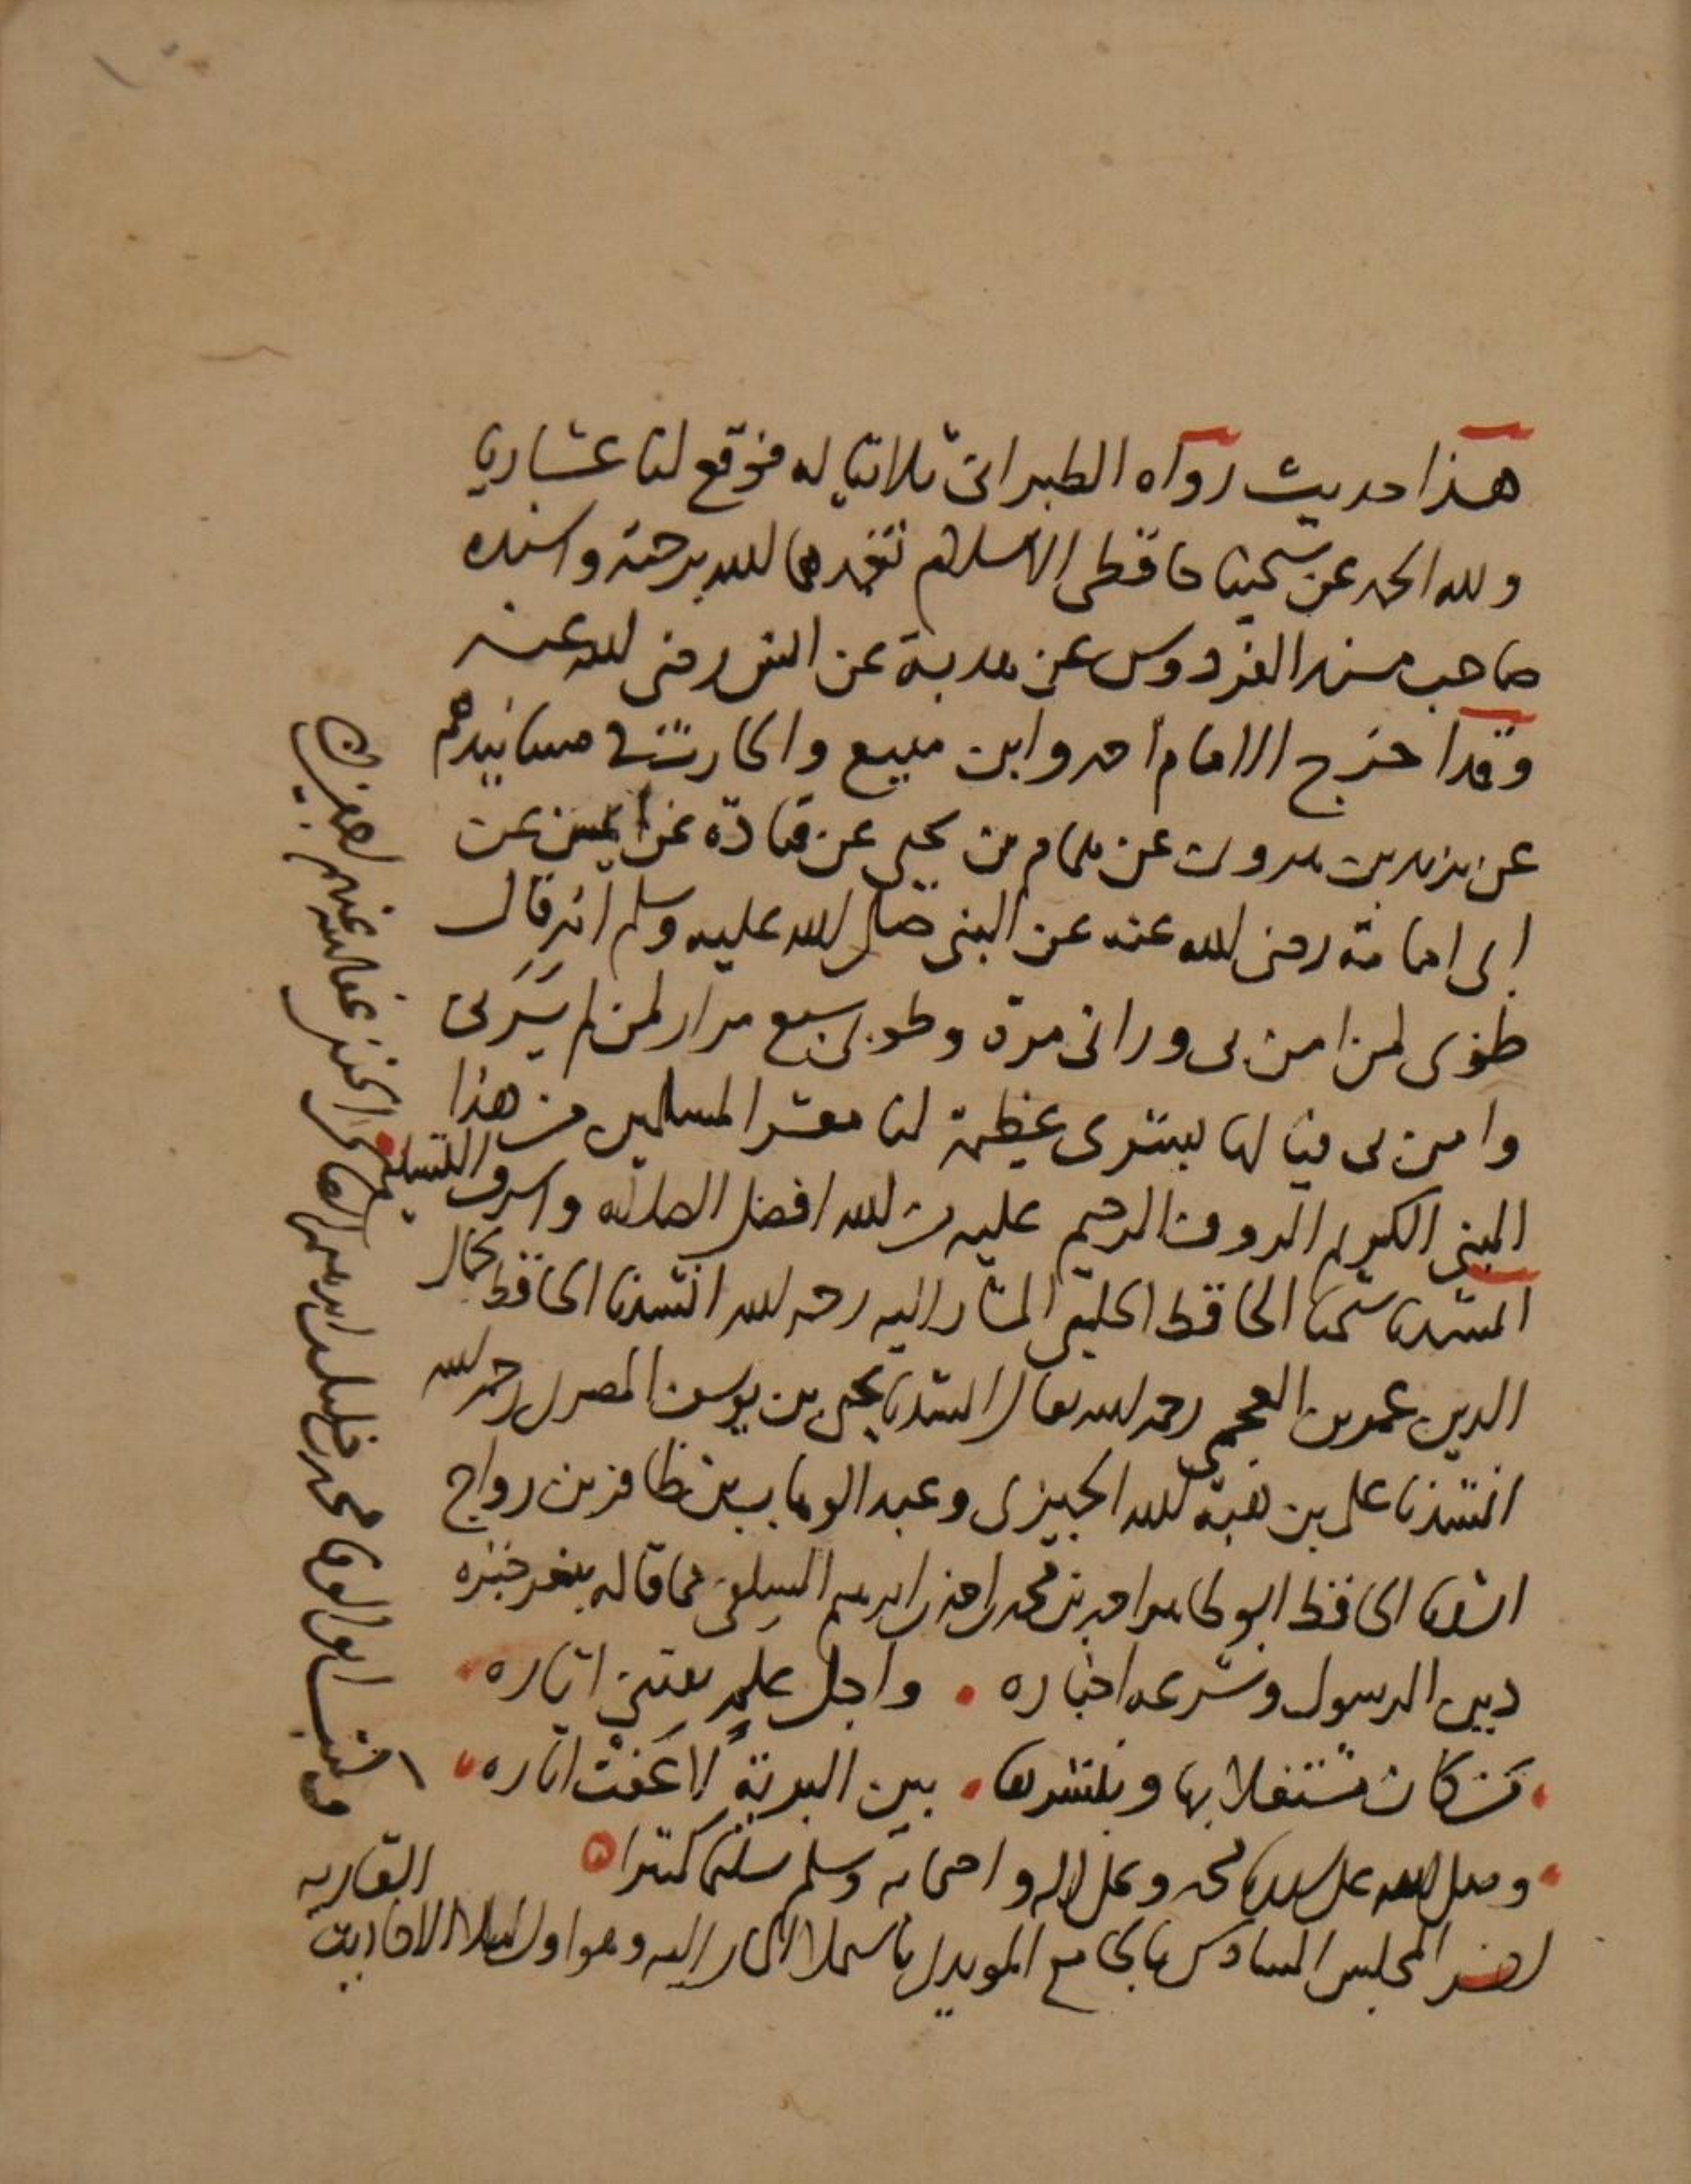 هذا حديث رواه الطبراني ثلاثيا له فوقع لنا عشاريا
ولله الحمد عن شيخينا حافظي الاسلام تغمدهما الله برحمته واسنده
صاحب مسند الفردوس عن هدبة عن انس رضي الله عنه
وقد اخرج الامام احمد وابن منيع والحارث في مسانيدهم
عن يزيد بن هرون عن همام بن يحيى عن قتادة عن ايمن عن
ابي امامة رضي الله عنه عن النبي صلى الله عليه وسلم انه قال
طوبى لمن امن بي وراني مرة وطوبى سبع مرار لمن لم يرني
وامن بي فيا لها بشرى عظيمة لنا معشر المسلمين من هذا
النبي الكريم الروف الرحيم عليه من الله افضل الصلاة واشرف التسليم
انشدنا شيخنا الحافظ الحلبي المشار اليه رحمه الله انشدنا الحافظ كمال
الدين عمر بن العجمي رحمه الله تعالى انشدنا يحيى بن يوسف المصري رحمه الله
انشدنا علي بن هبة الله الجميزي وعبد الوهاب بن ظافر بن رواج
انشدنا الحافظ ابو طاهر احمد بن محمد بن احمد بن ابرهيم السلفي مما قاله بثغر جنزه
دين الرسول وشرعه اخباره . واجل علم يقتنى اثاره
من كان مشتغلا بها وبنشرها . بين البرية لا عفت اثاره
وصلى الله على سيدنا محمد وعلى اله واصحابه وسلم تسليما كثيرا
اخر المجلس السادس بالجامع المويدي باستملا المشار اليه وهو اول املا الاحاديث
العشارية
وكتب ابو الوفا محمد بن خليل بن ابرهيم الصالحي الحنفي غفر الله عنهم اجمعين